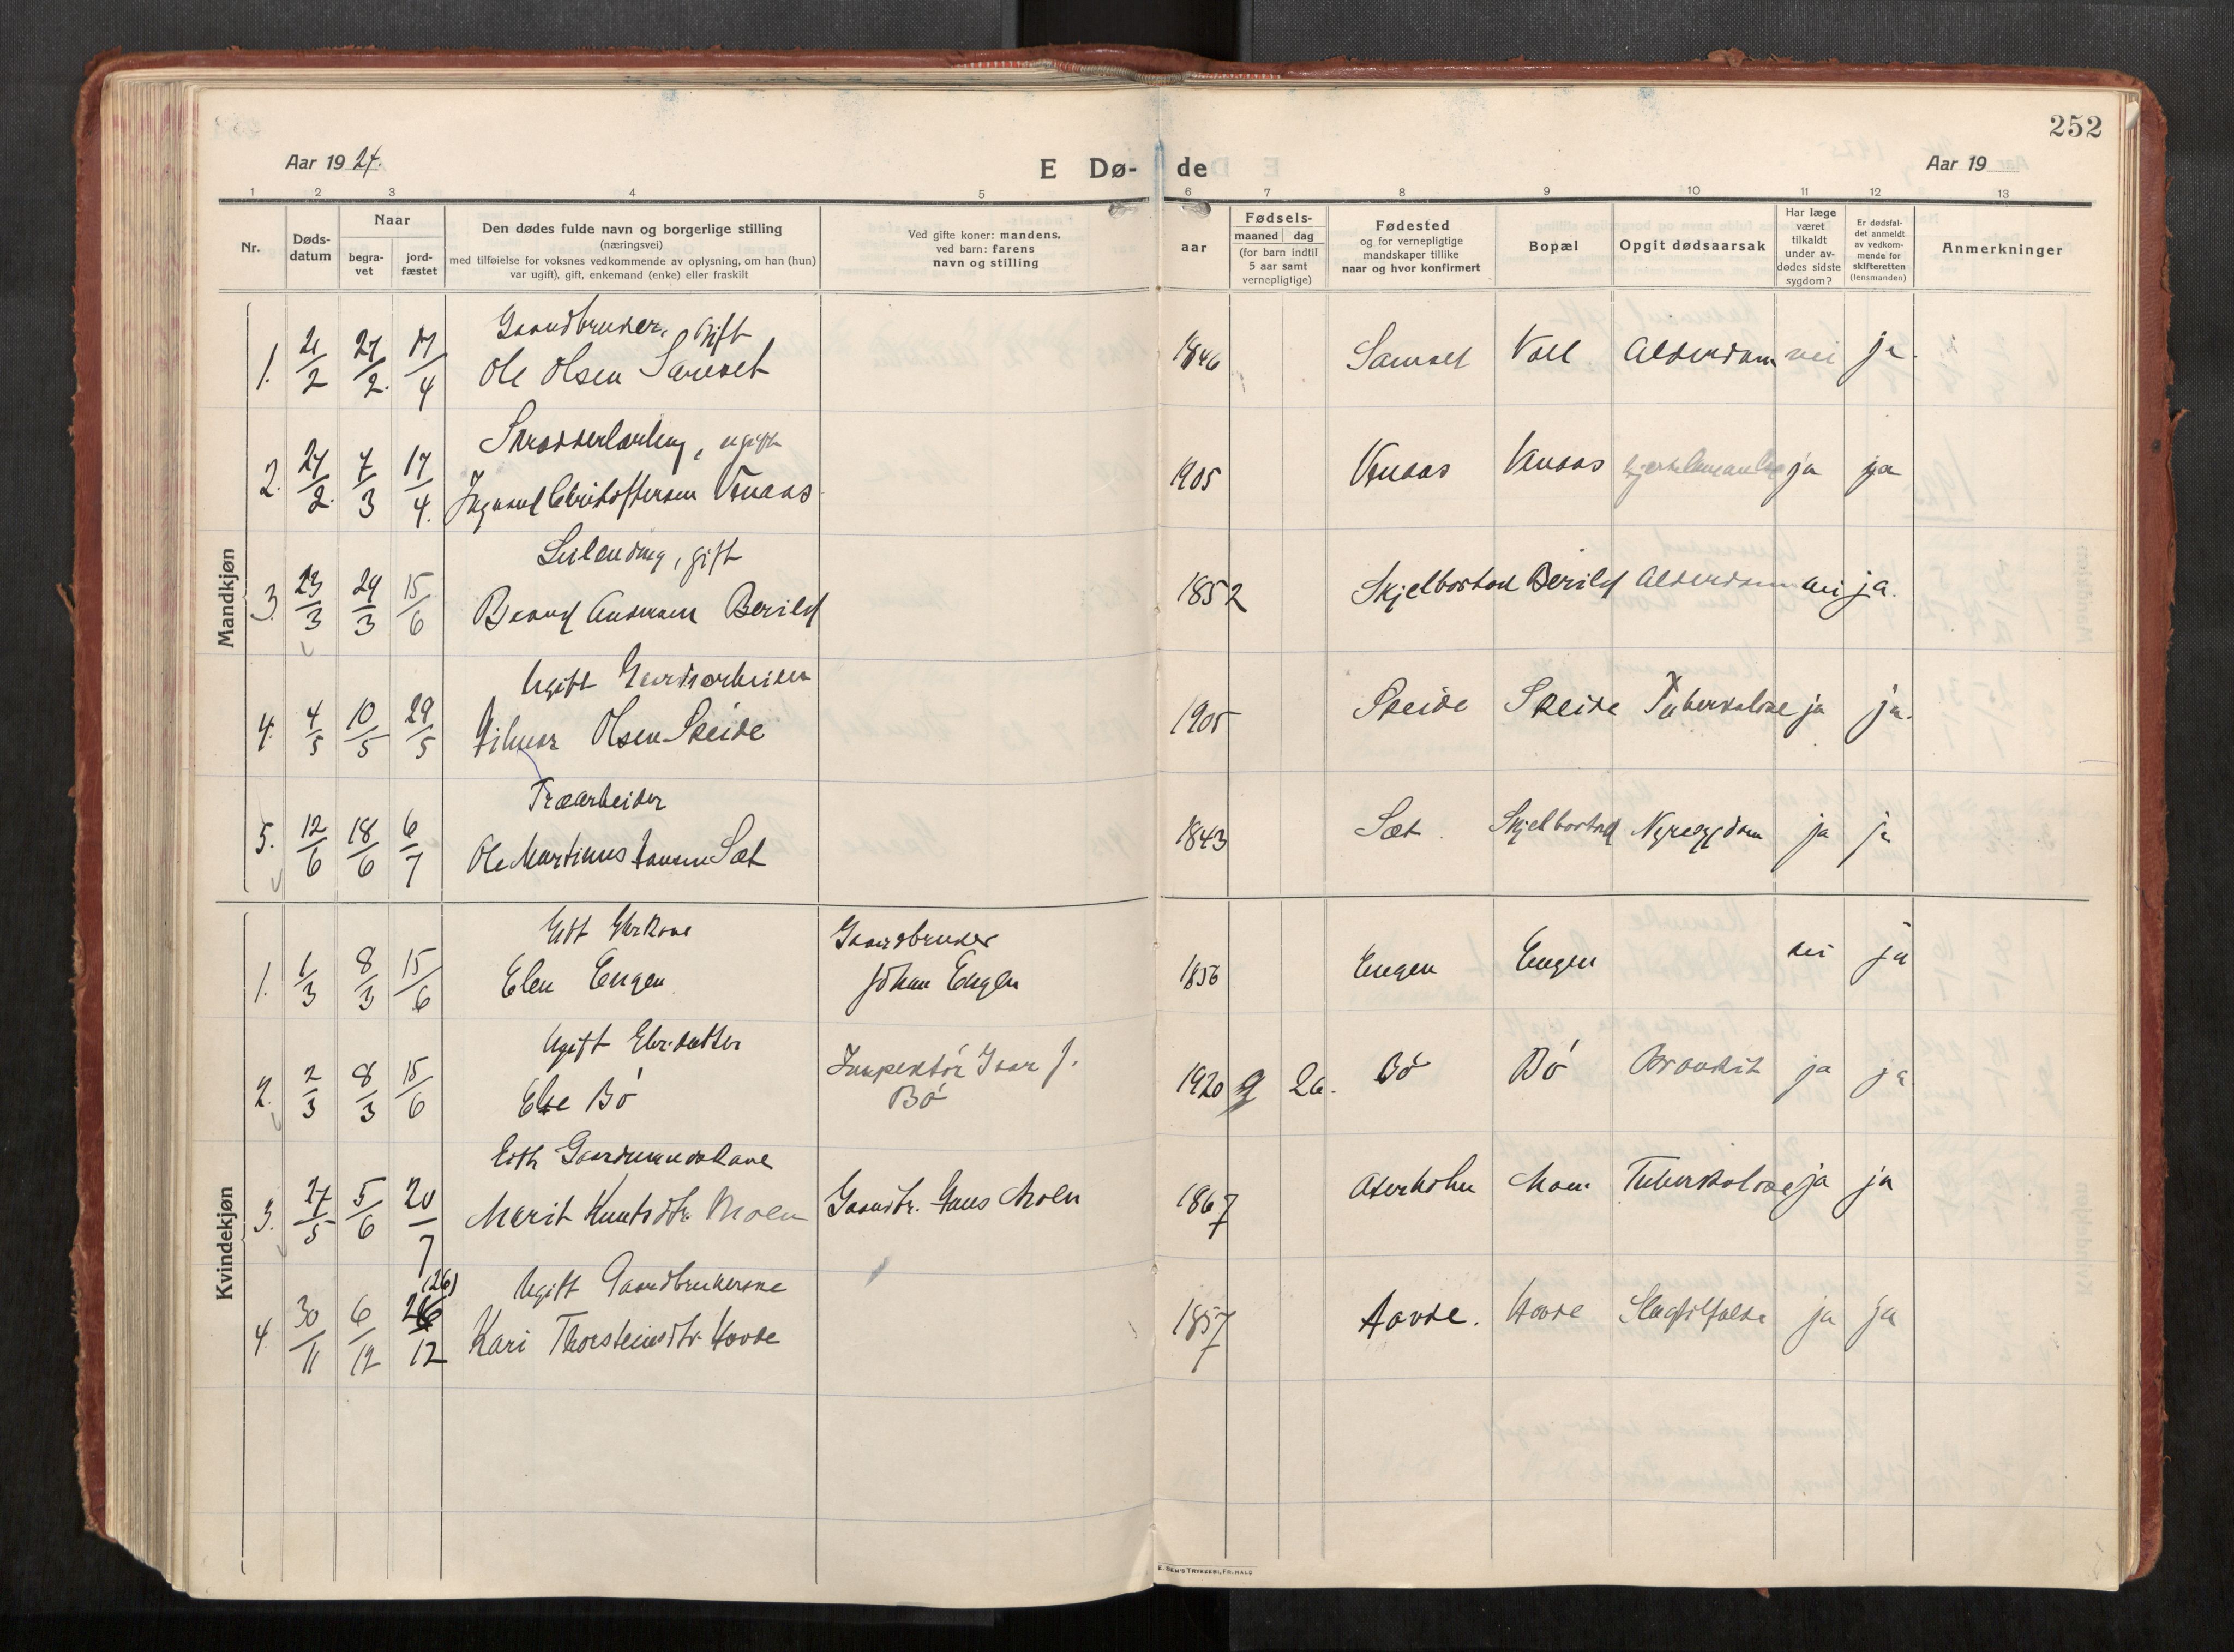 252
Aar 19 24.
E Dø- de
Aar 19
1 2 3 4 5 6 7 8 9 10 11 12 13
Nr.
Døds-
datum
Naar
begra-
vet
jord-
fæstet
Den dødes fulde navn og borgerlige stilling
(næringsvei)
med tilføielse for voksnes vedkommende av oplysning, om han (hun)
var ugift), gift, enkemand (enke) eller fraskilt
Ved gifte koner: mandens,
ved barn: farens
navn og stilling
aar
Fødsels-
maaned dag
(for barn indtil
5 aar samt
vernepligtige)
Fødested
og for vernepligtige
mandskaper tillike
naar og hvor konfirmert
Bopæl
Opgit dødsaarsak
Har læge
været
tilkaldt
under av-
dødes sidste
sygdom?
Er dødsfal-
det anmeldt
av vedkom-
mende for
skifteretten
(lensmanden)
Anmerkninger
Mandkjøn
Gaardbruker, Gift
1. 21/2 27/2. 17/4 Ole Olsen 1846 Voll Alderdom nei ja.
ugift
2. 27/2. 7/3 17/4. Venaas 1905 Venaas Venaas ja ja
gift
3. 23/3 29/3 15/6 Berild 1852 Skjelbostad Berild Alderdom nei ja.
Ugift Gaardsarbeider
4. 4/5 10/5 29/5 Hilmar Olsen Skeide 1905 Skeide Skeide Tuberkulose ja ja.
Træarbeider
5. 12/6 18/6 6/7 Ole Martinus Hansen Sæt 1843 Sæt. Skjelbostad Nyresygdom ja ja
Kvindekjøn
Gaardbruker
1. 1/3 8/3 15/6 Elen Engen Johan Engen 1856 Engen Engen nei ja
Ugift
2. 2/3 8/3 15/6 Else Bö Inspektör Ivar J. 1920 9 26. Bö Bö Bronkit ja ja
Bö
Gaardmandskone
3. 27/5 5/6 20/7 Marit Knutsdtr. Moen Gaardbr. Hans Moen 1867 7 Moen Tuberkulose ja ja
(26)
Ugift Gaardbrukerske
4. 30/11 6/12 26/12 Kari Thorsteinsdtr Hovde 1857 7 Hovde. Hovde Slagtilfælde ja ja
E. SEM'S TRYKKERI, FR.HALD